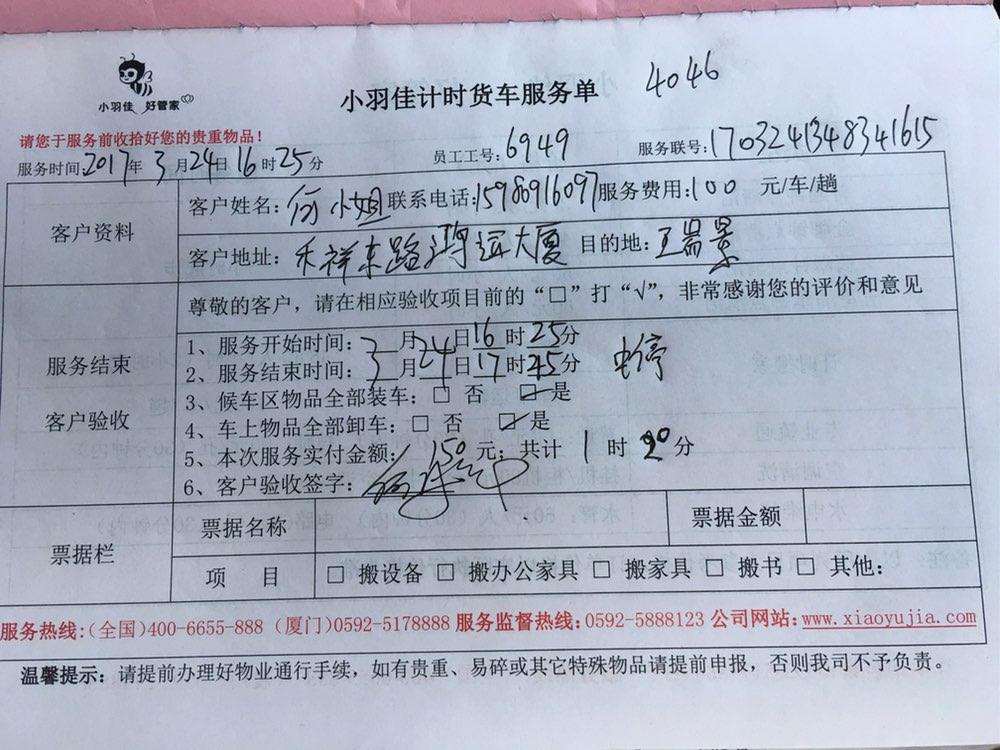 小羽佳 好管家
小羽佳计时货车服务单 4046
请您于服务前收拾好您的贵重物品！
服务时间:2017年3月24日16时25分 员工工号:6949 服务联号:1703241348341615
客户资料
客户姓名:何小姐 联系电话:15980916097 服务费用:100 元/车/趟
客户地址: 禾祥东路鸿远大厦 目的地: 瑞景
尊敬的客户，请在相应验收项目前的“□”打“√”，非常感谢您的评价和意见
服务结束
客户验收
1、服务开始时间: 3月24日16时25分
2、服务结束时间: 3月24日17时45分
3、候车区物品全部装车: □ 否 ☑ 是
4、车上物品全部卸车: □ 否 ☑ 是
5、本次服务实付金额: 150元; 共计 1 时 20分
6、客户验收签字:
票据栏
票据名称 票据金额
项 目 □ 搬设备 □ 搬办公家具 □ 搬家具 □ 搬书 □ 其他:
服务热线:(全国)400-6655-888 (厦门)0592-5178888 服务监督热线:0592-5888123 公司网站:www.xiaoyujia.com
温馨提示: 请提前办理好物业通行手续，如有贵重、易碎或其它特殊物品请提前申报，否则我司不予负责。